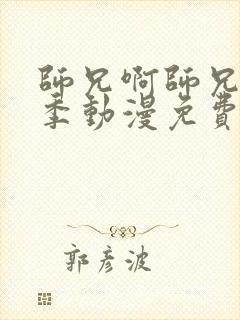 師兄啊師兄
季動漫免費
郭彦波